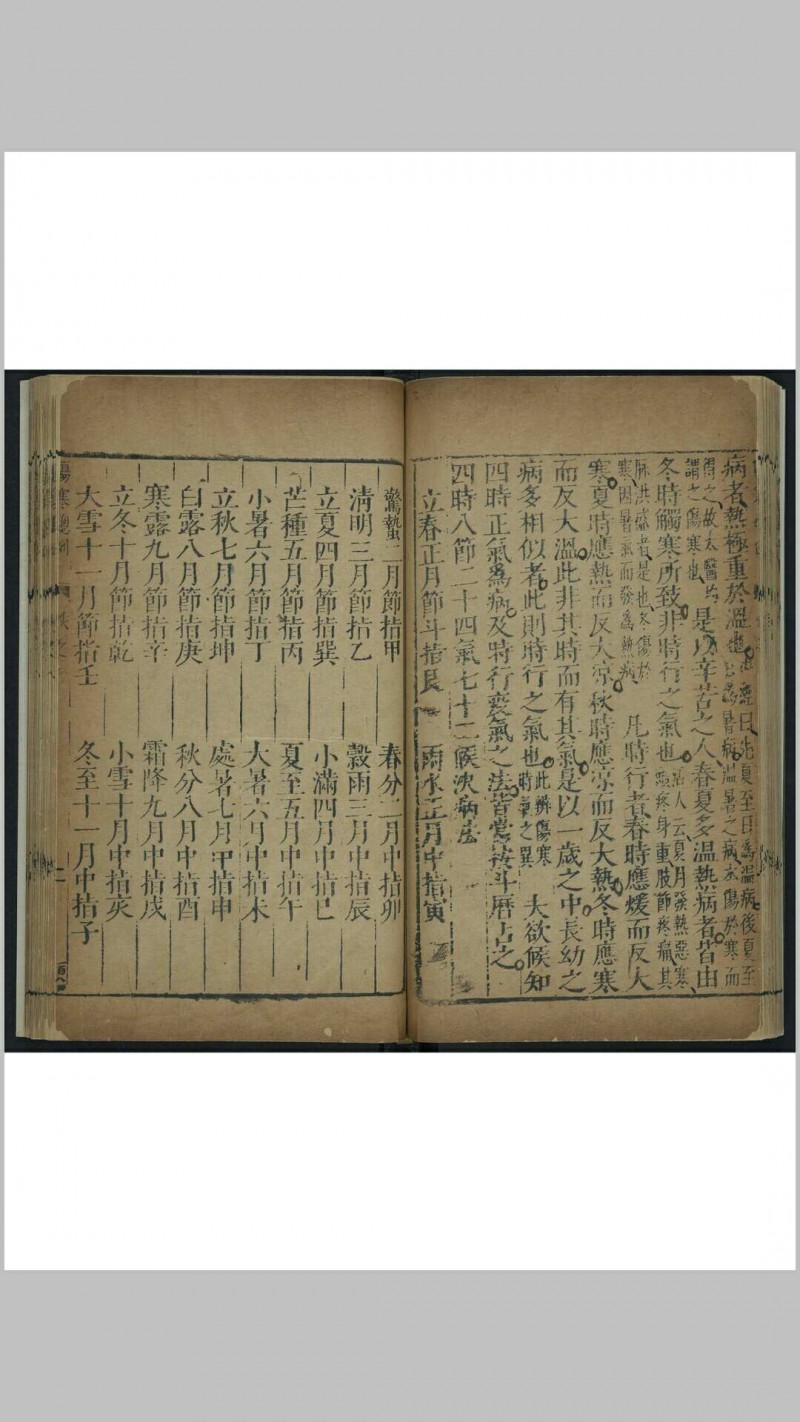 病者熱極重於溫也
是以辛苦之人春夏多温熱病者皆由
冬時觸寒所致非時行之氣也
凡時行者春時應煖而反大
寒夏時應熱而反大凉秋時應凉而反大熱冬時應寒
而反大溫此非其時而有其氣是以一歲之中長幼之
病多相似者此則時行之氣也此辨傷寒時氣之異 夫欲候知
四時正氣爲病及時行疫氣之法皆當按斗曆占之
四時八節二十四氣七十二候决病法
立春正月節斗指艮 雨水正月中指寅
驚蟄二月節指甲 春分二月中指卯
清明三月節指乙 穀雨三月中指辰
立夏四月節指巽 小滿四月中指巳
芒種五月節指丙 夏至五月中指午
小暑六月節指丁 大暑六月中指未
立秋七月節指坤 處暑七月中指申
白露八月節指庚 秋分八月中指酉
寒露九月節指辛 霜降九月中指戌
立冬十月節指乾 小雪十月中指亥
大雪十一月節指壬 冬至十一月中指子